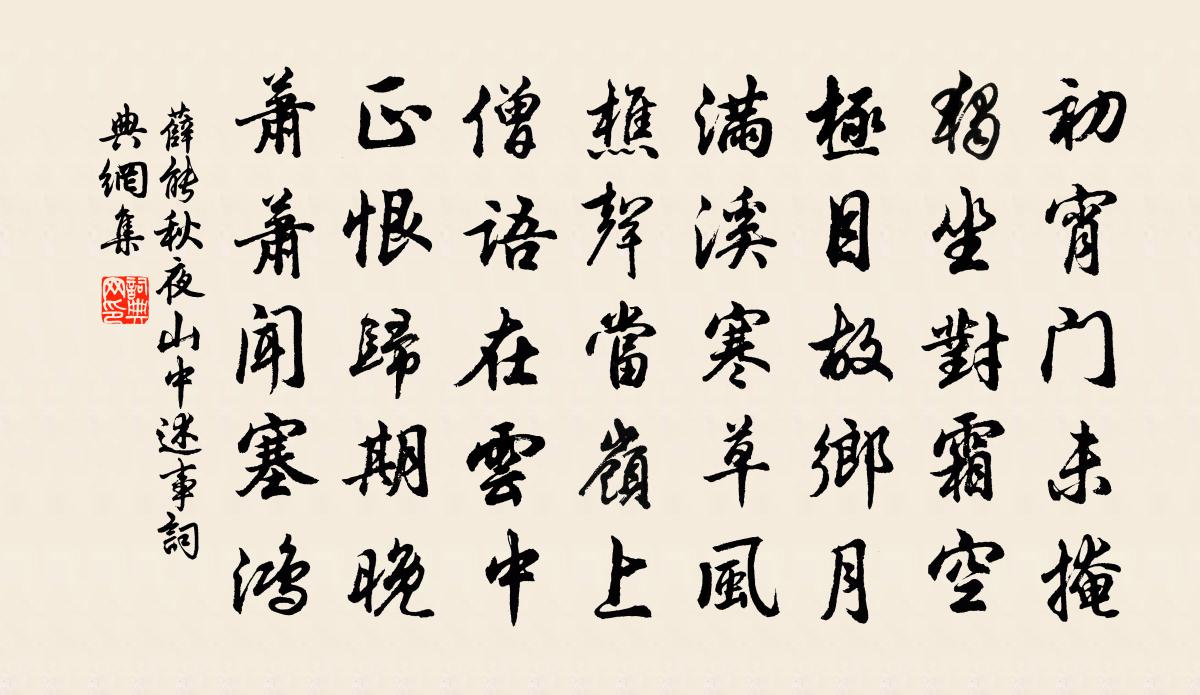 初宵门未掩
獨坐對霜空
極目故鄉月
滿溪寒草風
樵聲當嶺上
僧語在雲中
正恨歸期晚
蕭蕭聞塞鴻
薛能秋夜山中述事詞
典網集
詞典
网印